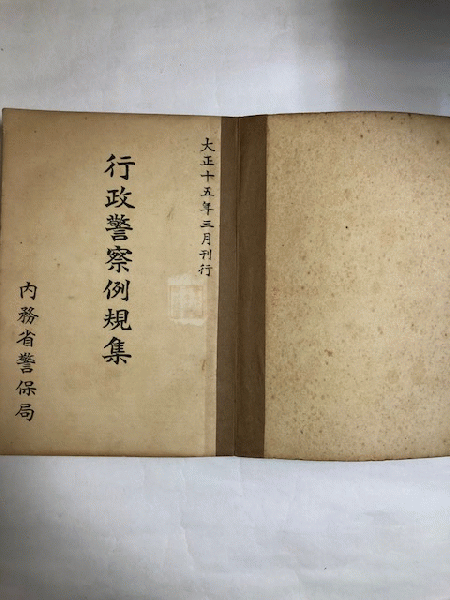 大正十五年三月刊行
行政警察例規集
内務省警保局